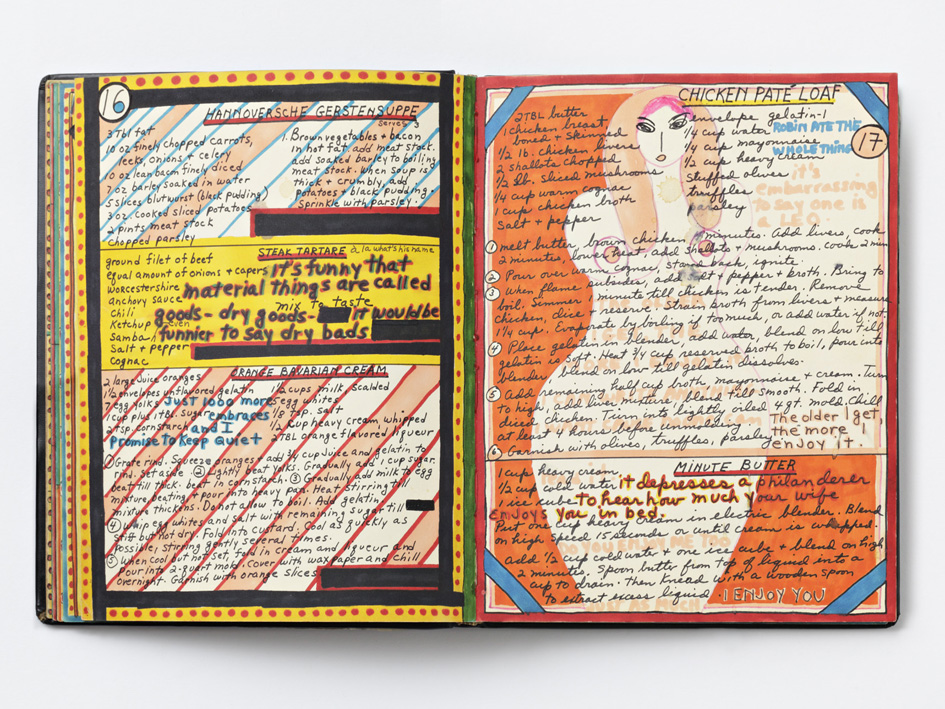 16
HANNOVERSCHE GERSTENSUPPE
serves 3
3 Tbl fat
10 oz finely chopped carrots,
leeks, onions + celery
7 oz lean bacon finely diced
7 oz barley soaked in water
3 slices blutwurst (black pudding)
3 oz cooked sliced potatoes
2 pints meat stock
chopped parsley
1. Brown vegetables + bacon
in hot fat. add meat stock.
add soaked barley to boiling
meat stock. When soup is
thick + crumbly, add
potatoes + black pudding.
Sprinkle with parsley.
STEAK TARTARE à la what's his name
ground filet of beef
equal amount of onions + capers
worcestershire
anchovy sauce
Chili
Ketchup
Sambal
Salt + pepper
Cognac
mix to taste
it's funny that
material things are called
goods - dry goods - it would be
even
funnier to say dry bads
ORANGE BAVARIAN CREAM
2 large juice oranges
1½ envelopes unflavored gelatin
egg yolks
1 cup plus 1 tbl. sugar
1 tsp. cornstarch
1½ cups milk scalded
egg whites
1/8 tsp. salt
1/2 cup heavy cream whipped
2 TBL orange flavored liqueur
Just 1000 more
embraces
and I
Promise to Keep Quiet
① Grate rind. Squeeze oranges add 3/4 cup juice and gelatin to
rind. Set aside. ② Lightly beat yolks. Gradually add 1 cup sugar.
beat till thick. beat in cornstarch. ③ Gradually add milk to egg
mixture beating + pour into heavy pan. Heat stirring till
thickens. Do not allow to boil. Add gelatin.
④ Whip egg whites and salt with remaining sugar till
stiff but not dry. Fold into custard. Cool as quickly as
possible, stirring gently several times.
⑤ When cool but not set, fold in cream and liqueur and
pour into 2-quart mold. Cover with wax paper and chill
overnight. Garnish with orange slices
CHICKEN PATÉ LOAF
17
2 TBL butter
1 chicken breast
boned + skinned
1/2 lb. chicken livers
2 shallots chopped
1/2 lb. sliced mushrooms
1/4 cup warm cognac
1 cup chicken broth
Salt + pepper
envelope gelatin-1
1/4 cup water
1/4 cup mayonnaise
1/2 cup heavy cream
Stuffed olives
truffles
parsley
ROBIN ATE THE
WHOLE THING
it's
embarrassing
to say one is
a LEO.
① melt butter, brown chicken, minutes. Add livers, cook
2 minutes, lower heat, add shallots + mushrooms. cook 2 min
② Pour over warm cognac, stand back, ignite.
③ When flame subsides, add salt + pepper + broth. Bring to
boil. Simmer minute till chicken is tender. Remove
chicken, dice + reserve. Strain broth from livers + measure
1¼ cup. Evaporate by boiling if too much, or add water if not.
④ Place gelatin in blender, add water, blend on low till
gelatin is soft. Heat 3/4 cup reserved broth to boil, pour into
blender, blend on low till gelatin dissolves.
⑤ Add remaining half cup broth, mayonnaise + cream. Turn
to high, add liver mixture, blend till smooth. Fold in
diced chicken. Turn into lightly oiled 4 qt. mold. Chill
at least 4 hours before unmolding.
⑥ Garnish with olives, truffles, parsley
The older I get
the more I
enjoy it.
MINUTE BUTTER
1 cup heavy cream
1/2 cup cold water
1 ice cube
it depresses a philanderer
to hear how much your wife
enjoys you in bed.
Put one cup heavy cream in electric blender. Blend
on high speed 15 seconds until cream is whipped.
Add 1/2 cup cold water + one ice cube + blend on high
2 minutes. Spoon butter from top of liquid into a
cup to drain. then knead with a wooden spoon
to extract excess liquid.
I ENJOY YOU